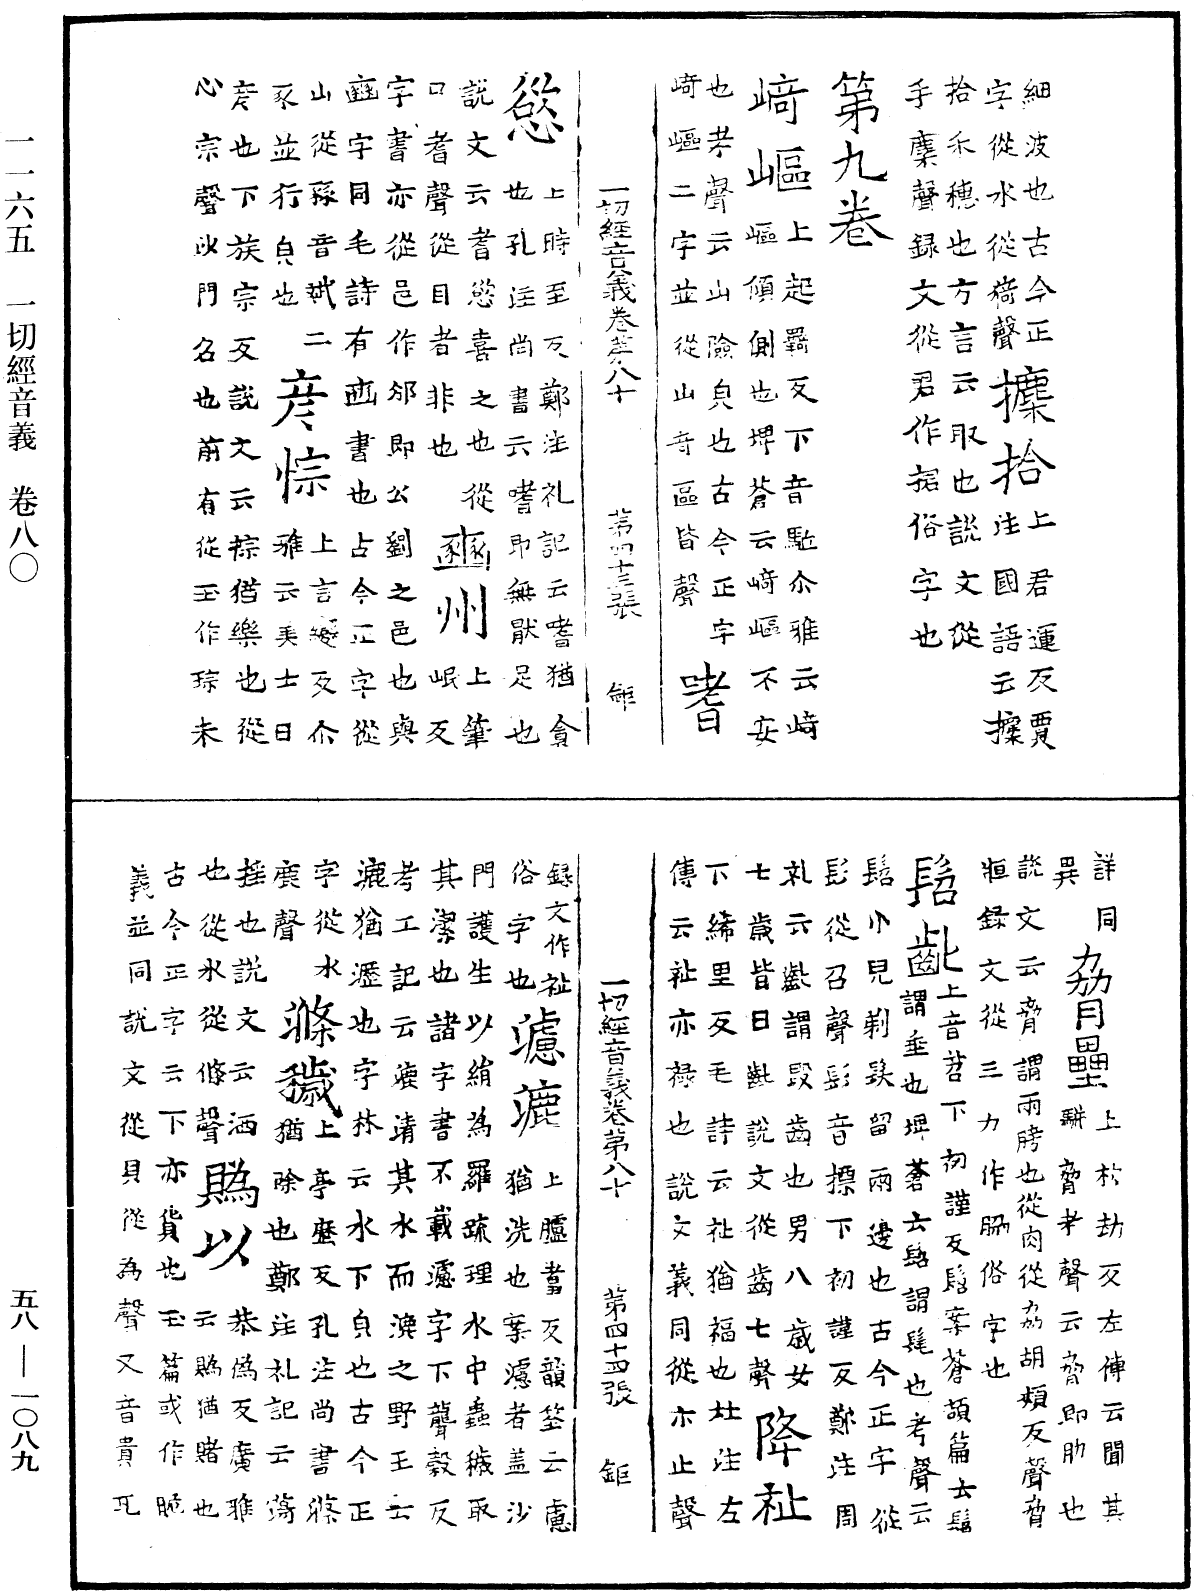 一一六五　一切經音義　卷八〇
細波也古今正
字從水從猗聲
攈拾
上君運反賈
注國語云攈
拾禾穗也方言云取也說文從
手麇聲録文從君作捃俗字也
第九卷
崎嶇
上起羈反下音駈尒雅云崎
嶇傾側也埤蒼云崎嶇不安
也考聲云山險皃也古今正字
崎嶇二字並從山奇區皆聲
嗜
一切經音義卷第八十　第四十三張　鉅
慾
上時至反鄭注礼記云嗜猶貪
也孔注尚書云嗜即無猒足也
說文云耆慾喜之也從
口耆聲從目者非也
豳州
上筆
岷反
字書亦從邑作邠即公劉之邑也與
豳字同毛詩有豳書也古今正字從
山從豩音斌二
豕並行皃也
彦悰
上言變反尒
雅云美士曰
彦也下族宗反說文云悰猶樂也從
心宗聲以門名也前有從玉作琮未
詳同
異
脅壘
上杴劫反左傳云聞其
駢脅考聲云脅即肋也
說文云脅謂兩膀也從肉從劦胡頰反聲脅
恒録文從三力作脇俗字也
髫齓
上音苕下初謹反髫案蒼頡篇云髫
謂垂也埤蒼云髫謂髦也考聲云
髫小兒剃髮留兩邊也古今正字從
髟從召聲髟音摽下初謹反鄭注周
礼云齓謂毀齒也男八歲女
七歲皆曰齓說文從齒七聲
降祉
下絺里反毛詩云祉猶福也杜注左
傳云祉亦禄也說文義同從示止聲
一切經音義卷第八十　第四十四張　鉅
録文作祉
俗字也
濾漉
上臚著反韻筌云慮
猶洗也案濾者盖沙
門護生以絹為羅疏理水中蟲穢取
其潔也諸字書不載濾字下聾穀反
考工記云漉清其水而漉之野王云
漉猶瀝也字林云水下皃也古今正
字從水
鹿聲
滌穢
上亭歷反孔注尚書滌
猶除也鄭注礼記云蕩
揺也說文云洒
也從水從條聲
賜以
恭為反廣雅
云賜猶賭也
古今正字云下亦貨也玉篇或作賹
義並同說文從貝從為聲又音貴瓦
五八—一〇八九